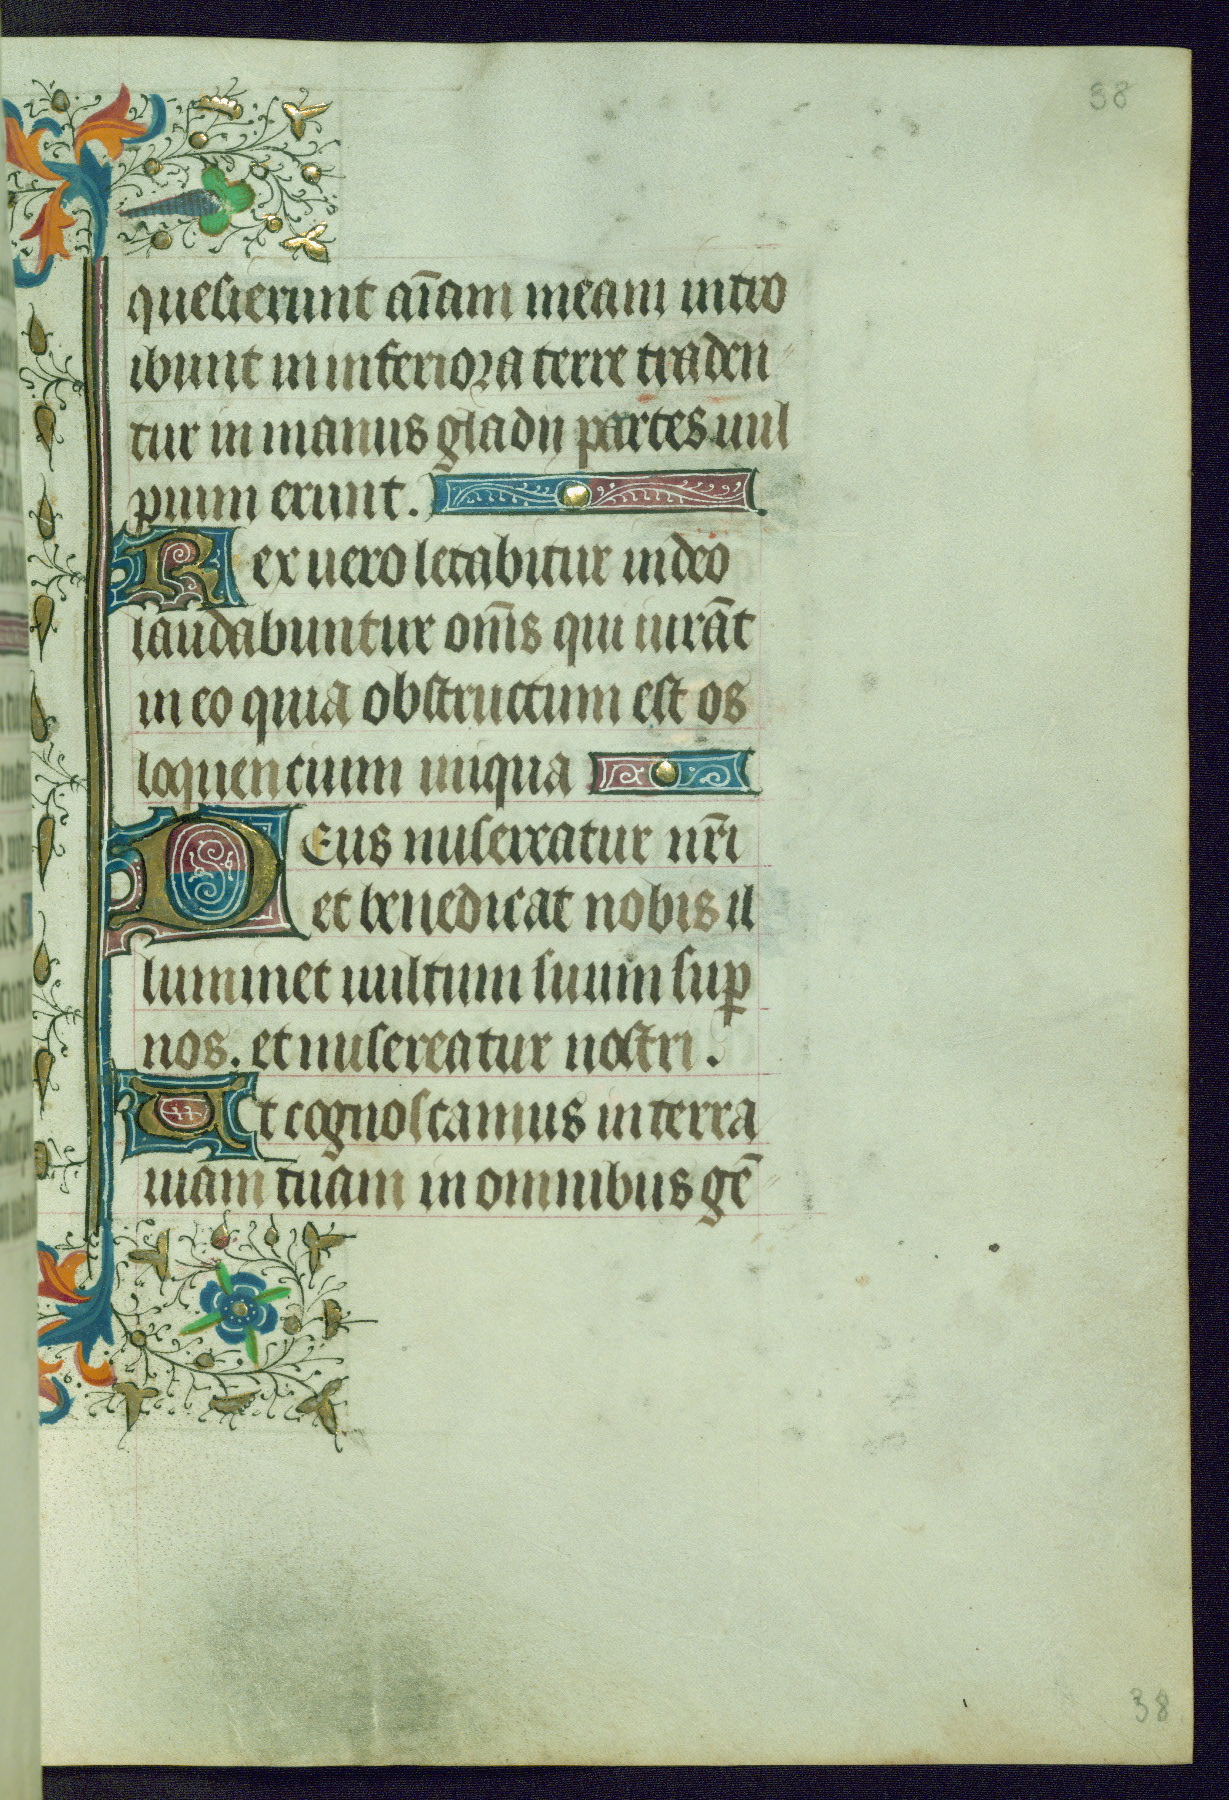 38
quesierunt aīam meam intro
ibunt in inferiora terre traden
tur in manus gladii partes uul
pium erunt.
Rex uero letabitur in deo
laudabuntur om̄s qui iurāt
in eo quia obstructum est os
loquentium iniqua
Deus misereatur nr̄i
et benedicat nobis il
luminet uultum suum suꝑ
nos. et misereatur nostri.
Ut cognoscamus in terra
uiam tuam in omnibus gē
38